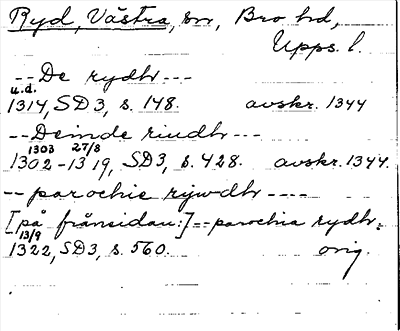 Ryd, Västra, sn, Bro hd,
Upps. l.
--De rydhr---
u.d.
1314, SD3, s. 148. avskr. 1344
--Deinde riudhr---
1303 27/8
1302-1319, SD3, s. 428. avskr. 1344.
--parochie rywdhr----
[på frånsidan:]--parochia rydhr.
13/9
1322, SD3, s. 560. orig.